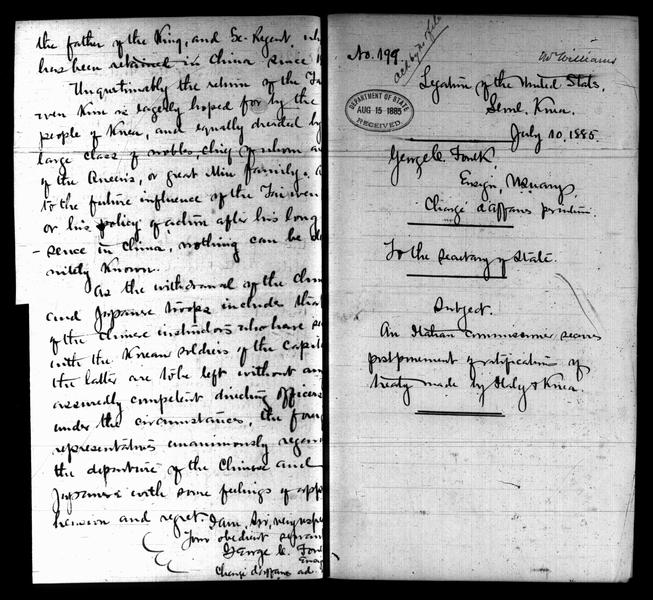 the father of the King, and Ex-Regent, who
has been retained in China since
Unquestionably the return of the Tai
wen Kun is eagerly hoped for by the
people of Korea, and equally dreaded by
large class of nobles, chief of whom a
of the Queen's, or great Min family,
to the future influence of the Tai wen
or his policy of action after his long
- sence in China, nothing can be de
nitely known.
As the withdrawal of the Chin
and Japanese troops include that
of the Chinese instructors who have
with the Korean soldiers of the Capit
the latter are to be left without any
assuredly competent directing officers
under the circumstances, the for
representatives unanimously regar
the departure of the Chinese and
Japanese with some feelings of appr
hension and regret. I am, Sir, very respe
Your obedient servan
George C. Foul
Ensi
Chargé d'affaires ad
No. 199.
Mr Williams
Legation of the United States,
Seoul, Korea.
DEPARTMENT OF STATE
AUG 15 1885
RECEIVED
July 10, 1885.
George C. Foulk,
Ensign, U.S. Navy,
Chargé d'affaires pro tem.
To the Secretary of State.
Subject.
An Italian Commissioner secures
postponement of ratification of
treaty made by Italy & Korea.